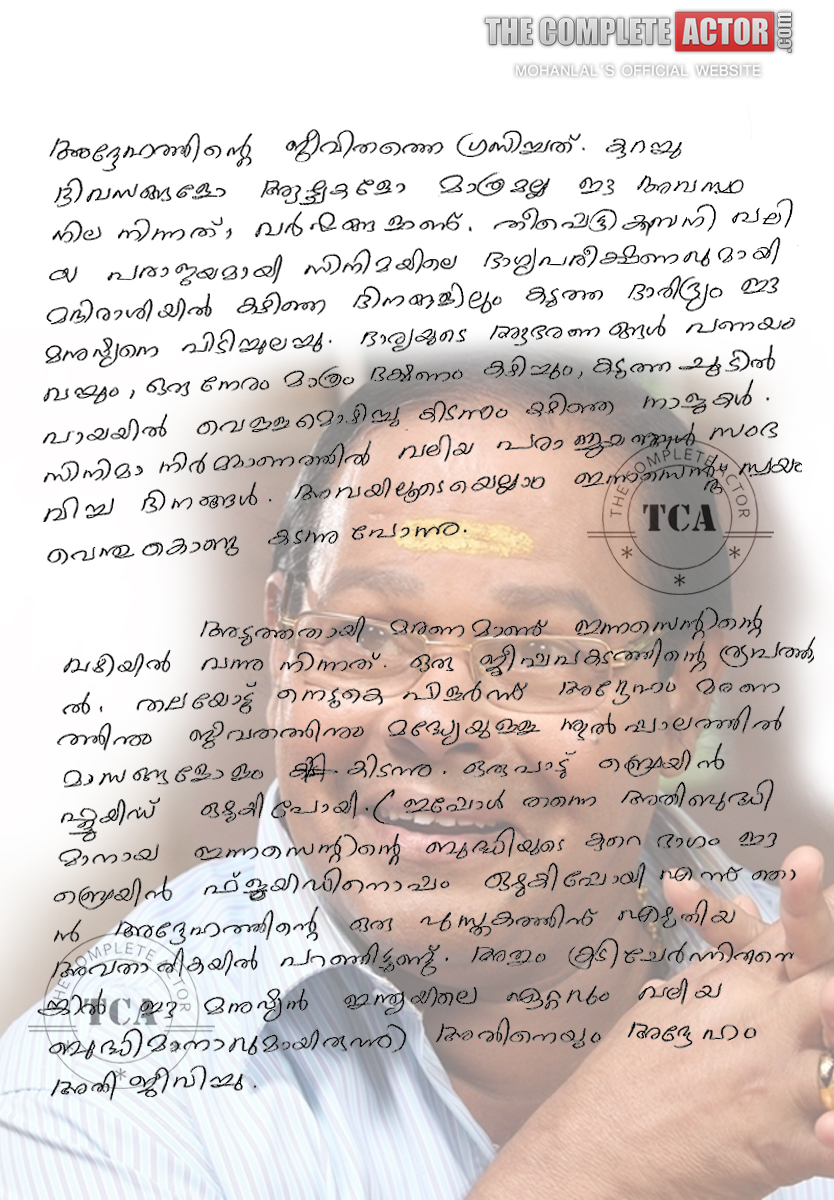 THE COMPLETE ACTOR.com
MOHANLAL'S OFFICIAL WEBSITE
അദ്ദേഹത്തിന്റെ ജീവിതത്തെ ഗ്രസിച്ചത്. കുറച്ചു
ദിവസങ്ങളോ ആഴ്ചകളോ മാത്രമല്ല ഈ അവസ്ഥ
നില നിന്നത്, വർഷങ്ങളാണ്. തീപ്പെട്ടികമ്പനി വലി
യ പരാജയമായി സിനിമയിലെ ഭാഗ്യപരീക്ഷണവുമായി
മദിരാശിയിൽ കഴിഞ്ഞ ദിനങ്ങളിലും കടുത്ത ദാരിദ്ര്യം ഈ
മനുഷ്യനെ പിടിച്ചുലച്ചു. ഭാര്യയുടെ ആഭരണങ്ങൾ പണയം
വയ്ച്ചും, ഒരു നേരം മാത്രം ഭക്ഷണം കഴിച്ചും, കടുത്ത ചൂടിൽ
പായയിൽ വെള്ളമൊഴിച്ചു കിടന്നും കഴിഞ്ഞ നാളുകൾ.
സിനിമാ നിർമ്മാണത്തിൽ വലിയ പരാജയങ്ങൾ സംഭ
വിച്ച ദിനങ്ങൾ. അവയിലൂടെയെല്ലാം ഇന്നസെന്റ് സ്വയം
വെന്തുകൊണ്ടു കടന്നു പോന്നു.
THE COMPLETE ACTOR
TCA
അടുത്തതായി മരണമാണ് ഇന്നസെന്റിന്റെ
വഴിയിൽ വന്നു നിന്നത്. ഒരു ജീപ്പപകടത്തിന്റെ രൂപത്തി
ൽ. തലയോട്ടി നെടുകെ പിളർന്ന് അദ്ദേഹം മരണ
ത്തിനും ജീവിതത്തിനും മദ്ധ്യേയുള്ള നൂൽപ്പാലത്തിൽ
മാസങ്ങളോളം കിടന്നു. ഒരുപാട് ബ്രെയിൻ
ഫ്ലൂയിഡ് ഒഴുകിപോയി. (ഇപ്പോൾ തന്നെ അതിബുദ്ധി
മാനായ ഇന്നസെന്റിന്റെ ബുദ്ധിയുടെ കുറെ ഭാഗം ഈ
ബ്രെയിൻ ഫ്ലൂയിഡിനൊപ്പം ഒഴുകിപ്പോയി എന്ന് ഞാ
ൻ അദ്ദേഹത്തിന്റെ ഒരു പുസ്തകത്തിന് എഴുതിയ
അവതാരികയിൽ പറഞ്ഞിട്ടുണ്ട്. അതും കൂടിചേർന്നിരുന്നെ
ങ്കിൽ ഈ മനുഷ്യൻ ഇന്ത്യയിലെ ഏറ്റവും വലിയ
ബുദ്ധിമാനാവുമായിരുന്നു) അതിനെയും അദ്ദേഹം
അതിജീവിച്ചു.
THE COMPLETE ACTOR
TCA